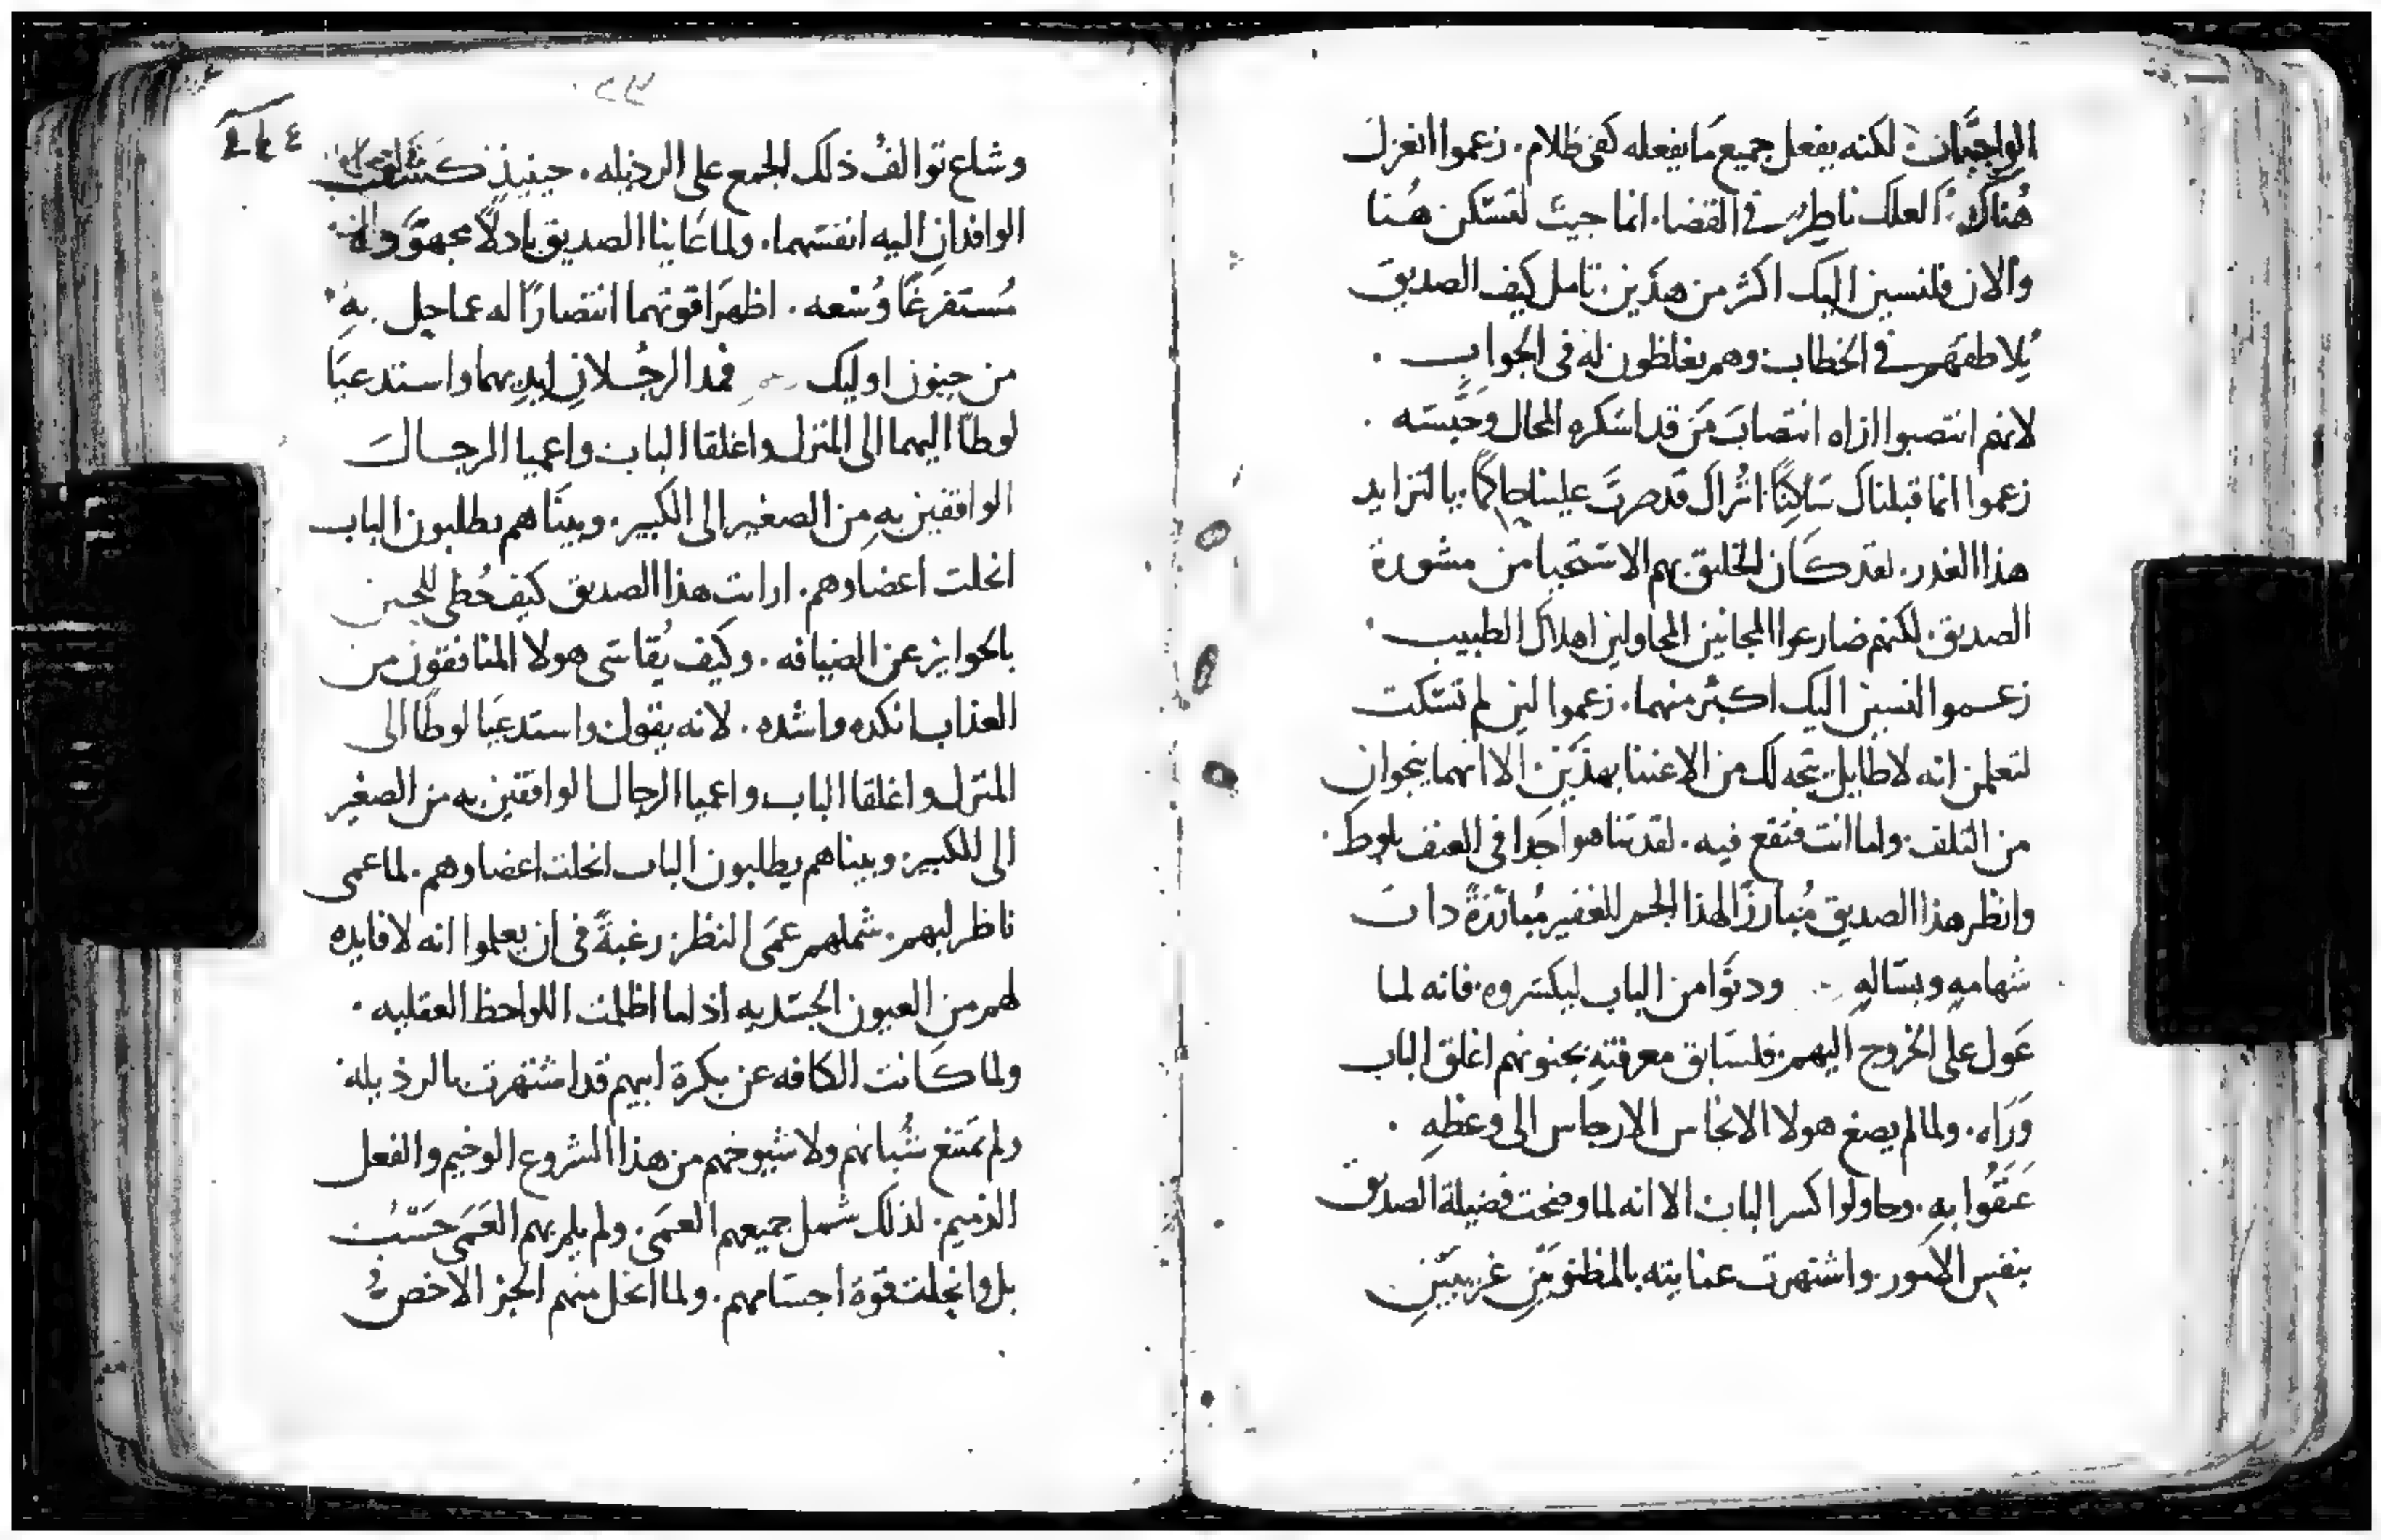 الواجبات لكنه يفعل جميع ما يفعله كفى ظلام. زعموا انعزل
هُناك العلك ناظر في القضا. انما جيت لتسكن هنا
والان فلنسين اليك اكثر من هذين. تامل كيف الصديق
يُلاطفهم في الخطاب وهم يغلظون له في الجواب.
لانهم انتصبوا ازاه انتصاب مَن قد اسكره المحال وحبسَه.
زعموا انما قبلناك سَاكنًا اتراك قد صرت علينا حاكمًا. يا لتزايد
هذا الغدر. لقد كان الخليق بهم الاستحيا من مشورة
الصديق. لكنهم ضارعوا المجانين المحاولين اهلاك الطبيب.
زعموا لنسين اليك اكثر منهما. زعموا لين لم تسكت
لتعلمن انه لا طايل يتجه لك من الاعتنا بهذين. الا انهما ينجوان
من التلف واما انت فتقع فيه. لقد تناهوا جدا في العنف بلوط.
وانظر هذا الصديق مُبارزًا لهذا الجم الغفير مُبارزةً دات
شهامهٍ وبسَالهٍ ودنوا من الباب ليكسروه. فانه لما
عَول على الخروج اليهم. فلسَابق معرفتهِ بجنونهم اغلق الباب
وَرَاه. ولما لم يصغ هولا الانجاس الارجاس الى وعظهِ.
عَنَفُوا بهِ. وحاولوا كسر الباب الا انه لما وضحت فضيلة الصديق
بنفس الامور. واشتهرت عنايته بالمظنونين غريبين
٢٤٤
وشاع توالفُ ذلك الجمع على الرذيله. حينيذٍ كشف
الوافدان اليه انفسهما. ولما عَاينا الصديق باذلًا مجهوده
مُستفرغًا وُسْعه. اظهرَا قوتهما انتصارًا له عما حل بهِ
من جنون اوليك فمد الرجُلانِ ايديهما واستدعيَا
لوطًا اليهما الى المنزل واغلقا الباب واعميا الرجال
الواقفين بهِ من الصغير الى الكبير. وبينَا هم يطلبون الباب
انحلت اعضاوهم. ارايت هذا الصديق كيف حُظي للحين
بالجوايز عن الضيافه. وكيف يُقاسَى هولا المنافقون من
العذاب انكده واشده. لانه يقول واستدعيَا لوطًا الى
المنزل واغلقا الباب واعميا الرجال الواقفين به من الصغير
الى الكبير. وبينا هم يطلبون الباب انحلت اعضاوهم. لما عمى
ناظر لبهم. شملهم عمَى النظر. رغبةً في ان يعلموا انه لا فايده
لهم من العيون الجسَديه اذا ما اظلمت اللواحظ العقليه.
ولما كَانت الكافه عن بكرة ابيهم قد اشتهرت بالرذيله
ولم تمتنع شُبانهم ولا شيوخهم من هذا الشروع الوخيم والفعل
الذميم. لذلك شمل جميعهم العمَى. ولم يلم بهم العَمَى حَسْبُ
بل وانحلت قوة اجسَامهم. ولما انحل منهم الجز الاخص في